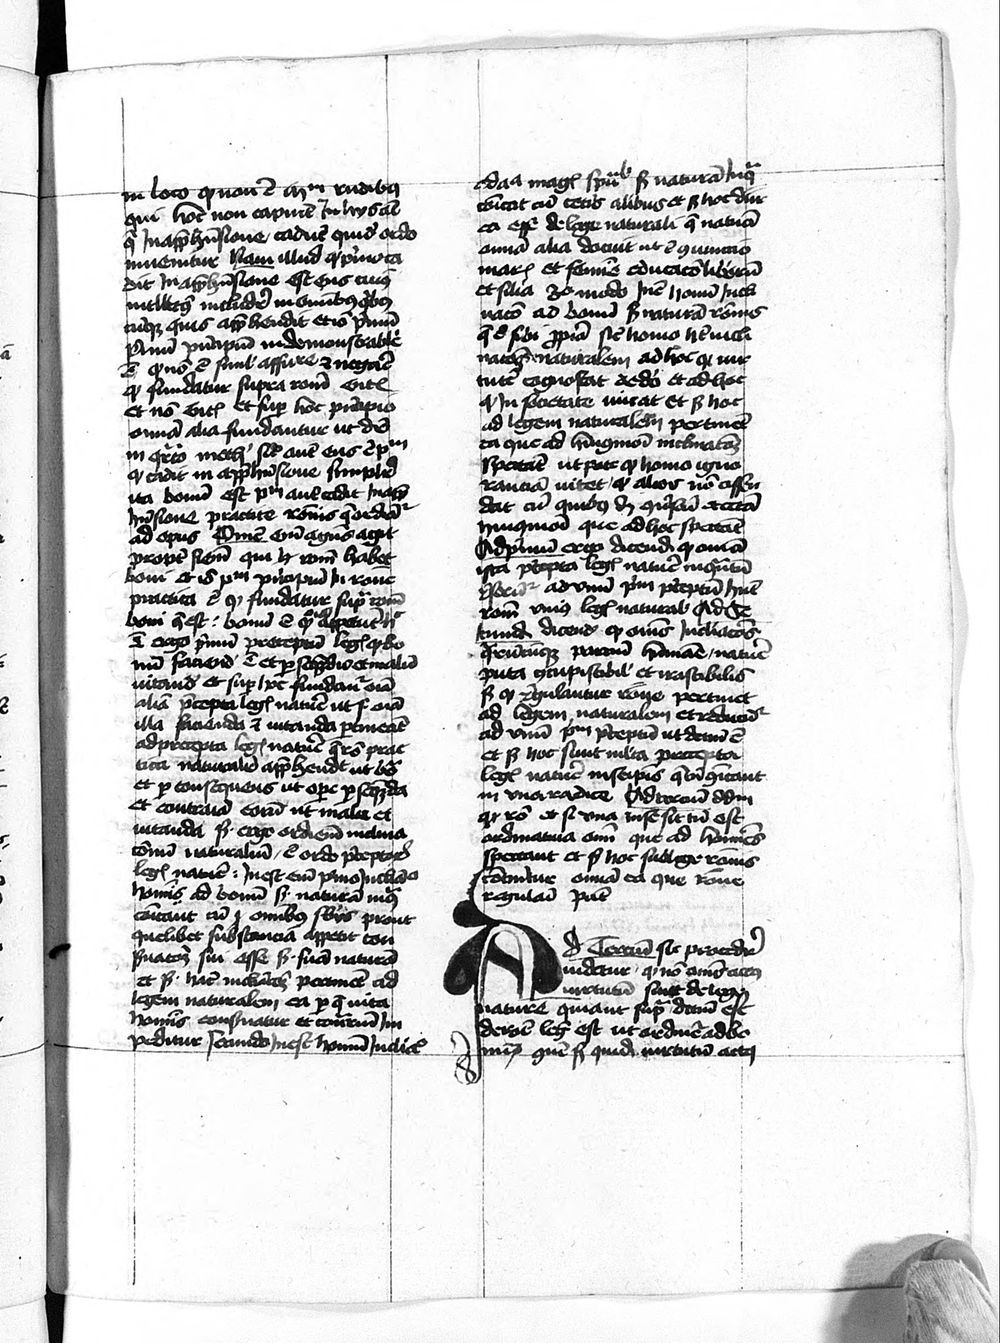 in loco quod non est am rudibus
qui hoc non capiunt In hys aut
que In apprehensione cadunt quidam ordo
invenitur Nam illud quod primo ca
dit In apprehensione est ens cuius
intellectus includitur in omnibus que
cumque quis apprehendit et ideo primum
principium indemonstrabile
est quod non est simul affirmare et negare
quod fundatur supra rationem entis
et non entis et super hoc principio
omnia alia fundantur ut dicitur
in quarto meth sicut autem ens est primum
quod cadit in apprehensione simpliciter
ita bonum est primum quod cadit In appre
hensione practice rationis que ordinatur
ad opus Omne enim agens agit
propter finem qui habet rationem
boni et ideo primum principium In ratione
practica est quod fundatur supra rationem
boni que est bonum est quod appetunt
hoc est ergo primum preceptum legis quod bo
num faciendum est et prosequendum et malum
vitandum et super hoc fundantur omnia
alia precepta legis nature ut s omnia
illa facienda et vitanda pertineant
ad precepta legis nature que ratio prac
tica naturaliter apprehendit ut bona
et per consequens ut opere prosequenda
et contraria eorum ut mala et
vitanda secundum ergo ordinem inclina
tionum naturalium est ordo preceptorum
legis nature Inest enim primo Inclinatio
homini ad bonum secundum naturam in qua
communicat cum omnibus substantiis prout
quelibet substantia appetit con
servationem sui esse secundum suam naturam
et secundum hanc inclinationem pertinent ad
legem naturalem ea per que vita
hominis conservatur et contrarium Im
peditur secundo Inest homini Inclinatio
ad aliqua magis specialia secundum naturam In qua
communicat cum ceteris animalibus et secundum hoc dicuntur
ea esse de lege naturali que natura
omnia alia docuit ut est coniunctio
maris et femine educatio liberorum
et similia 3o modo Inest homini Incli
natio ad bonum secundum naturam rationis
que est sibi propria sicut homo habet incli
nationem naturalem ad hoc quod veri
tatem cognoscat de deo et ad hoc
quod In societate vivat et secundum hoc
ad legem naturalem pertinent
ea que ad huiusmodi inclinationem
spectant ut puta quod homo igno
ranciam vitet quod alios non offen
dat cum quibus debet conversari et cetera
huiusmodi que ad hoc spectant
Ad primum ergo dicendum quod omnia
ista precepta legis nature inquantum
referuntur ad unum primum preceptum habent
rationem unius legis naturalis Ad se
cundum dicendum quod omnes Inclinationes
quarumcumque partium humane nature
puta concupiscibilis et irascibilis
secundum quod regulantur ratione pertinent
ad legem naturalem et reducuntur
ad unum primum preceptum ut dictum est
et secundum hoc sunt multa precepta
legis nature in seipsis que communicant
in una radice Ad tercium dicendum
quod ratio et si una in se sit tamen est
ordinativa omnium que ad homines
spectant et secundum hoc sub lege rationis
continentur omnia ea que ratione
regulari possunt
Ad Tercium sic proceditur
videtur quod non omnes actus
virtutum sint de lege
nature quia ut supra dictum est
de ratione legis est ut ordinetur ad bo
num commune sed quidam virtutum actus